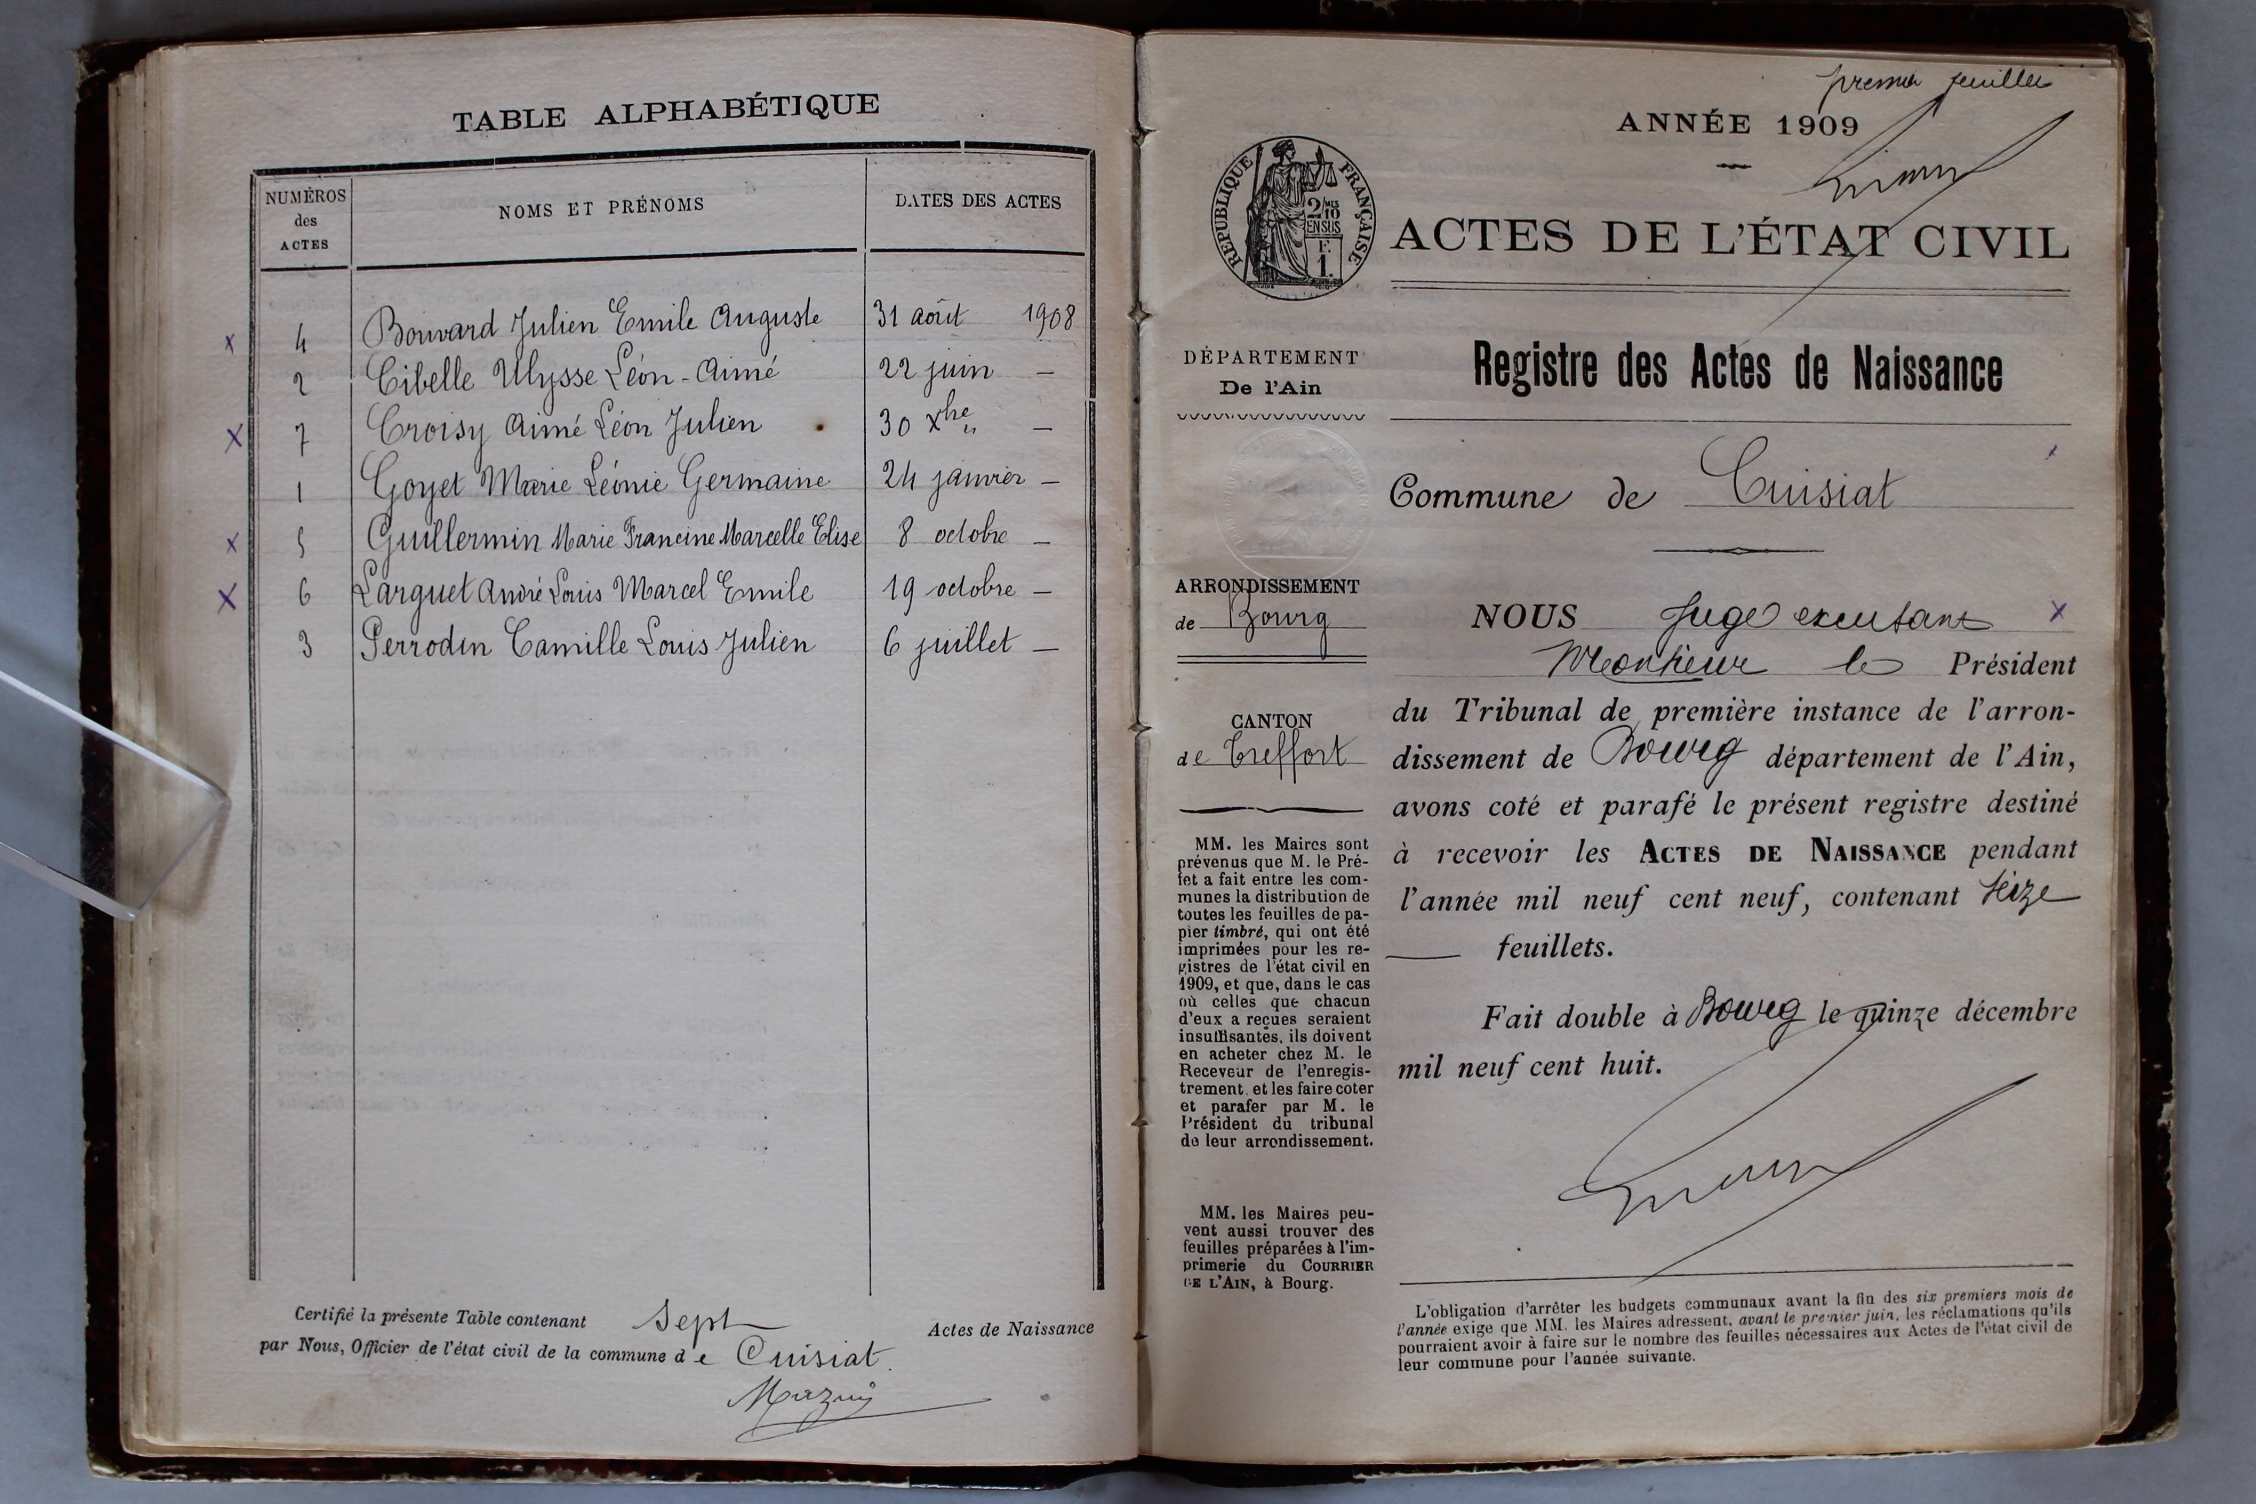 TABLE ALPHABÉTIQUE
NUMÉROS
des
ACTES
NOMS ET PRÉNOMS
DATES DES ACTES
x 4 Bouvard Julien Emile Auguste 31 août 1908
2 Cibelle Ulysse Léon-Aimé 22 juin —
x 7 Croisy Aimé Léon Julien 30 Xbre „ —
1 Goyet Marie Léonie Germaine 24 janvier —
x 5 Guillermin Marie Francine Marcelle Elise 8 octobre —
x 6 Larguet André Louis Marcel Emile 19 octobre —
3 Perrodin Camille Louis Julien 6 juillet —
Certifié la présente Table contenant Sept Actes de Naissance
par Nous, Officier de l'état civil de la commune de Cuisiat.
premier feuillet
ANNÉE 1909
RÉPUBLIQUE FRANÇAISE
2/10
EN SUS
F.
1.
ACTES DE L'ÉTAT CIVIL
DÉPARTEMENT
De l'Ain
ARRONDISSEMENT
de Bourg
CANTON
de Treffort
MM. les Maires sont
prévenus que M. le Pré-
fet a fait entre les com-
munes la distribution de
toutes les feuilles de pa-
pier timbré, qui ont été
imprimées pour les re-
gistres de l'état civil en
1909, et que, dans le cas
où celles que chacun
d'eux a reçues seraient
insuffisantes, ils doivent
en acheter chez M. le
Receveur de l'enregis-
trement, et les faire coter
et parafer par M. le
Président du tribunal
de leur arrondissement.
MM. les Maires peu-
vent aussi trouver des
feuilles préparées à l'im-
primerie du COURRIER
DE L'AIN, à Bourg.
Registre des Actes de Naissance
Commune de Cuisiat
NOUS Juge x
Monsieur le Président
du Tribunal de première instance de l'arron-
dissement de Bourg département de l'Ain,
avons coté et parafé le présent registre destiné
à recevoir les ACTES DE NAISSANCE pendant
l'année mil neuf cent neuf, contenant seize
— feuillets.
Fait double à Bourg le quinze décembre
mil neuf cent huit.
L'obligation d'arrêter les budgets communaux avant la fin des six premiers mois de
l'année exige que MM. les Maires adressent, avant le premier juin, les réclamations qu'ils
pourraient avoir à faire sur le nombre des feuilles nécessaires aux Actes de l'état civil de
leur commune pour l'année suivante.